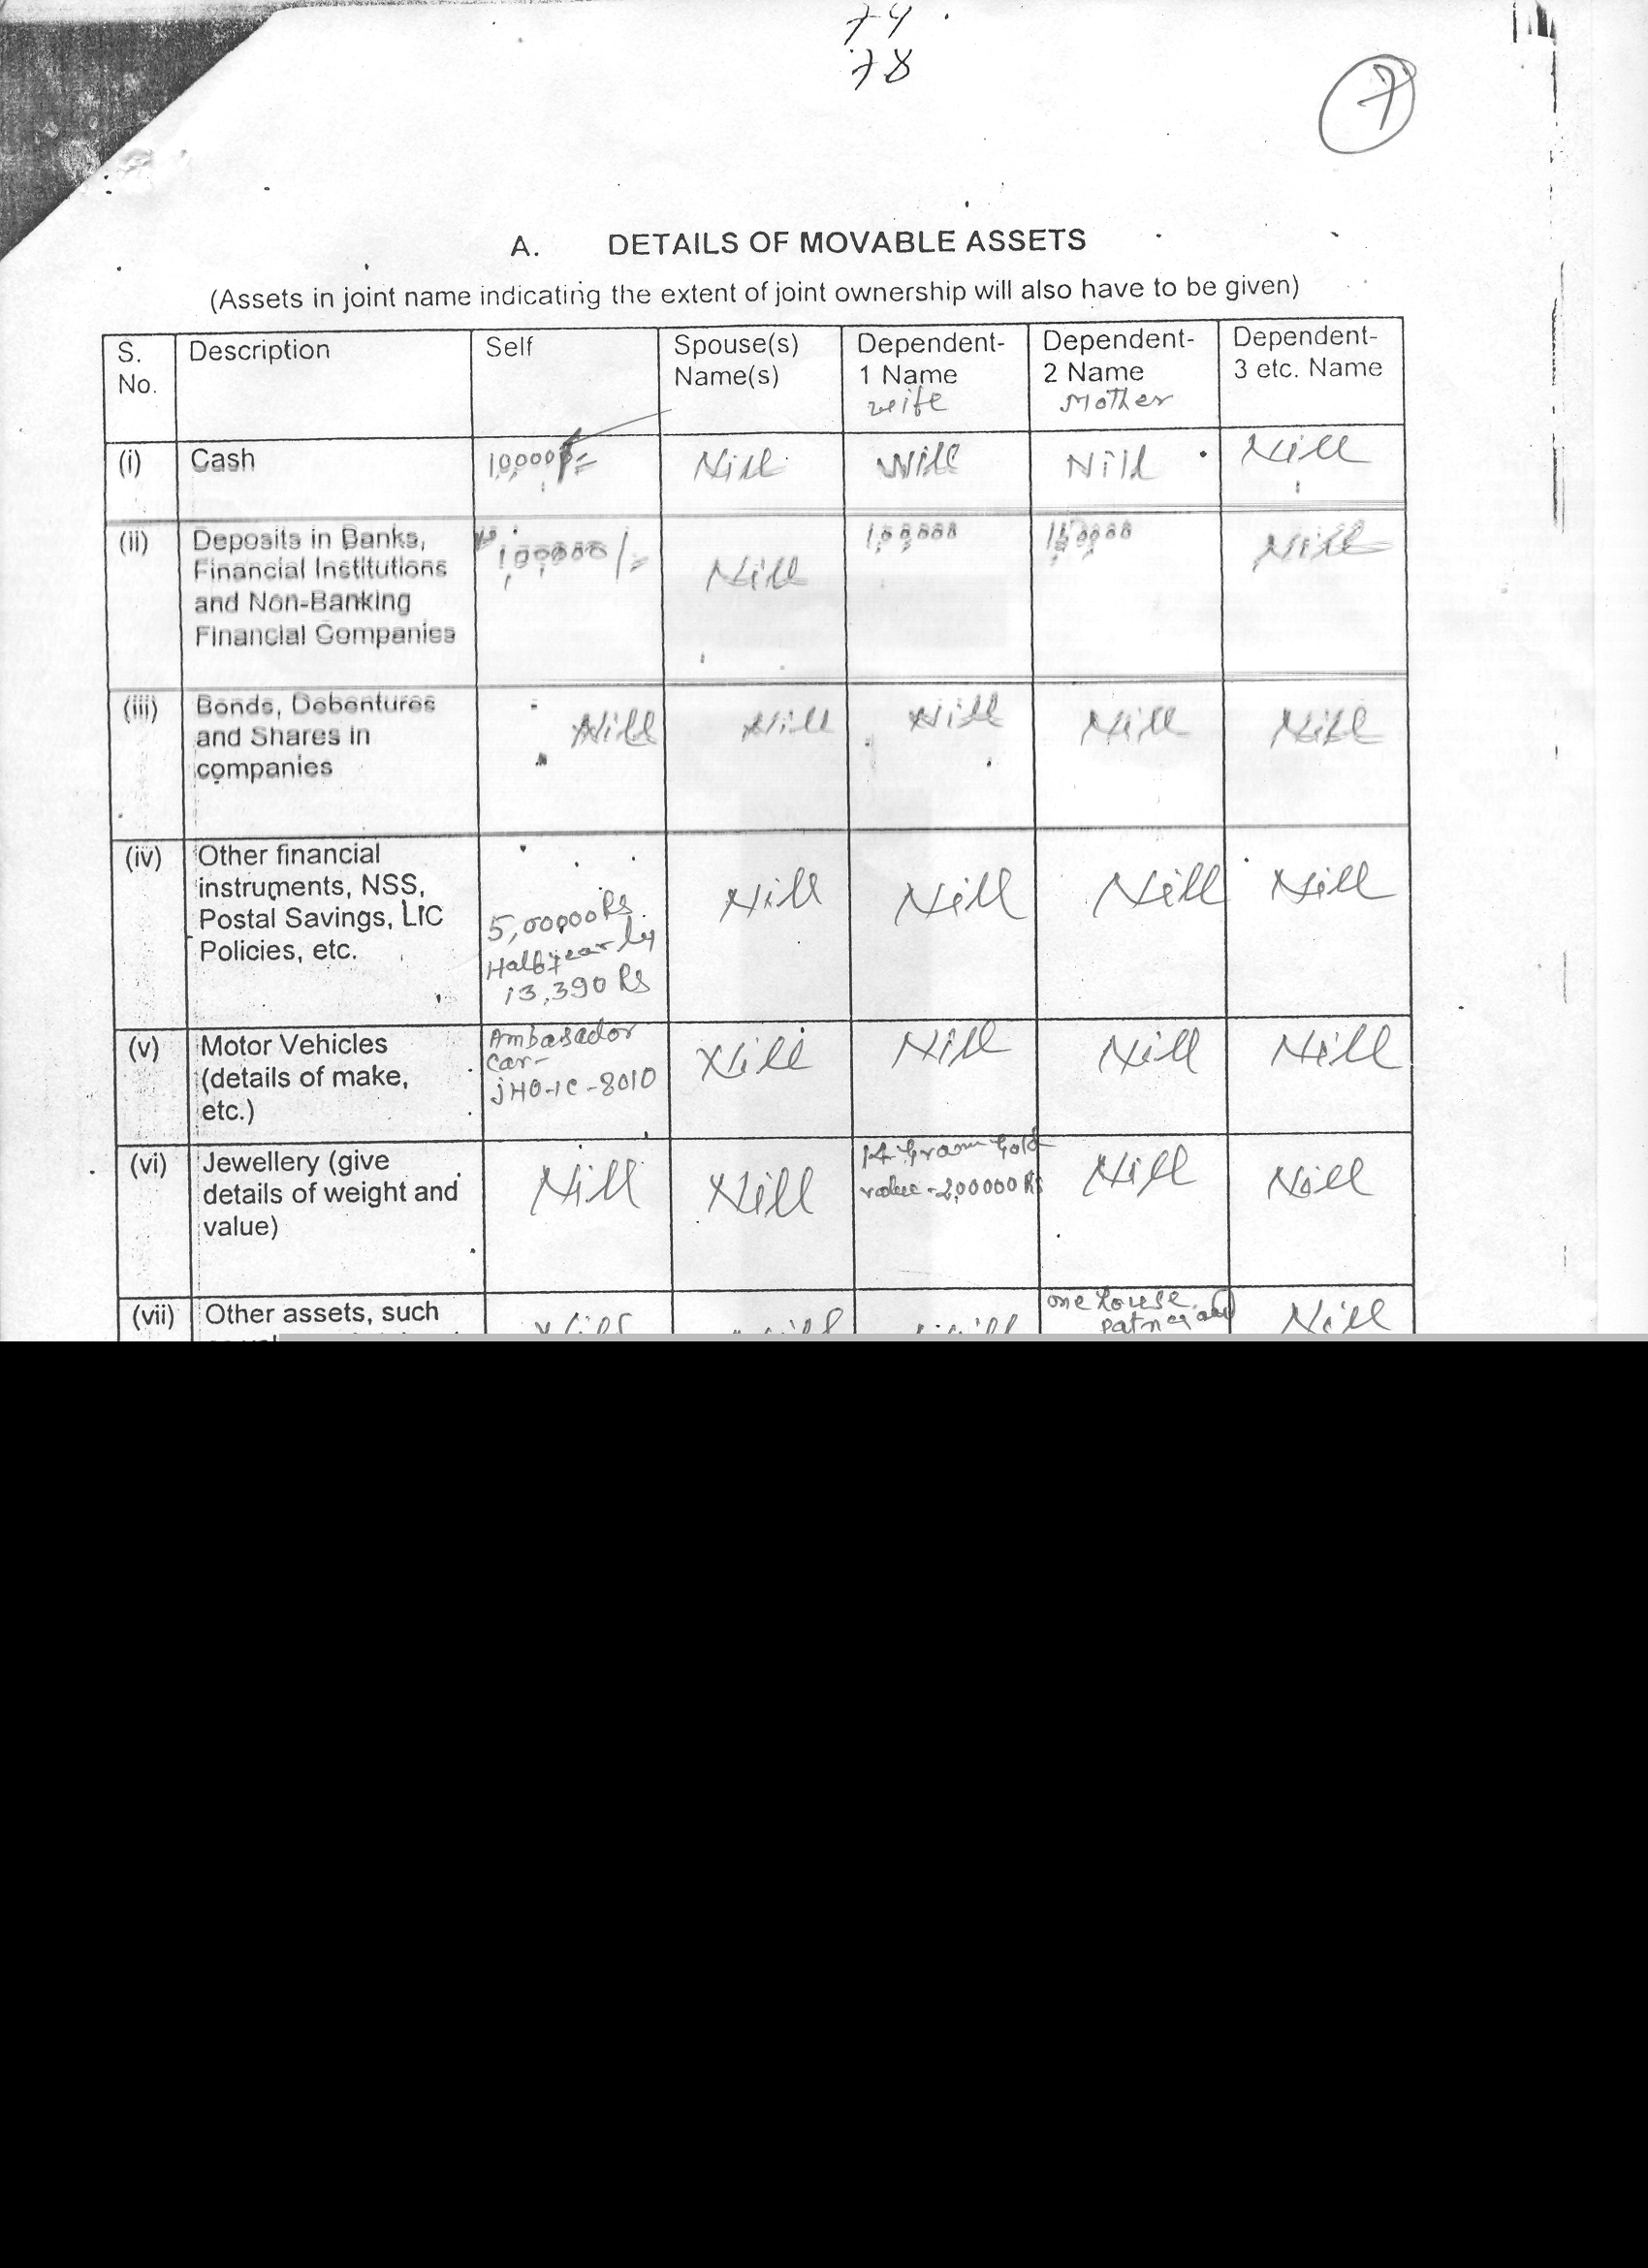 74
78
7
A. DETAILS OF MOVABLE ASSETS
(Assets in joint name indicating the extent of joint ownership will also have to be given)
S. No. Description Self Spouse(s) Name(s) Dependent-1 Name wife Dependent-2 Name Mother Dependent-3 etc. Name
(i) Cash Nill Nill Nill Nill
(ii) Deposits in Banks, Financial Institutions and Non-Banking Financial Companies 1,00,000/- Nill 1,00,000 Nill
(iii) Bonds, Debentures and Shares in companies Nill Nill Nill Nill Nill
(iv) Other financial instruments, NSS, Postal Savings, LIC Policies, etc. 5,00000 Rs Half yearly 13,390 Rs Nill Nill Nill Nill
(v) Motor Vehicles (details of make, etc.) Ambasador Car- JHO-1C-8010 Nill Nill Nill Nill
(vi) Jewellery (give details of weight and value) Nill Nill 14 gram Gold value - 2,00000 Rs Nill Nill
(vii) Other assets, such Nill Nill Nill one house Nill